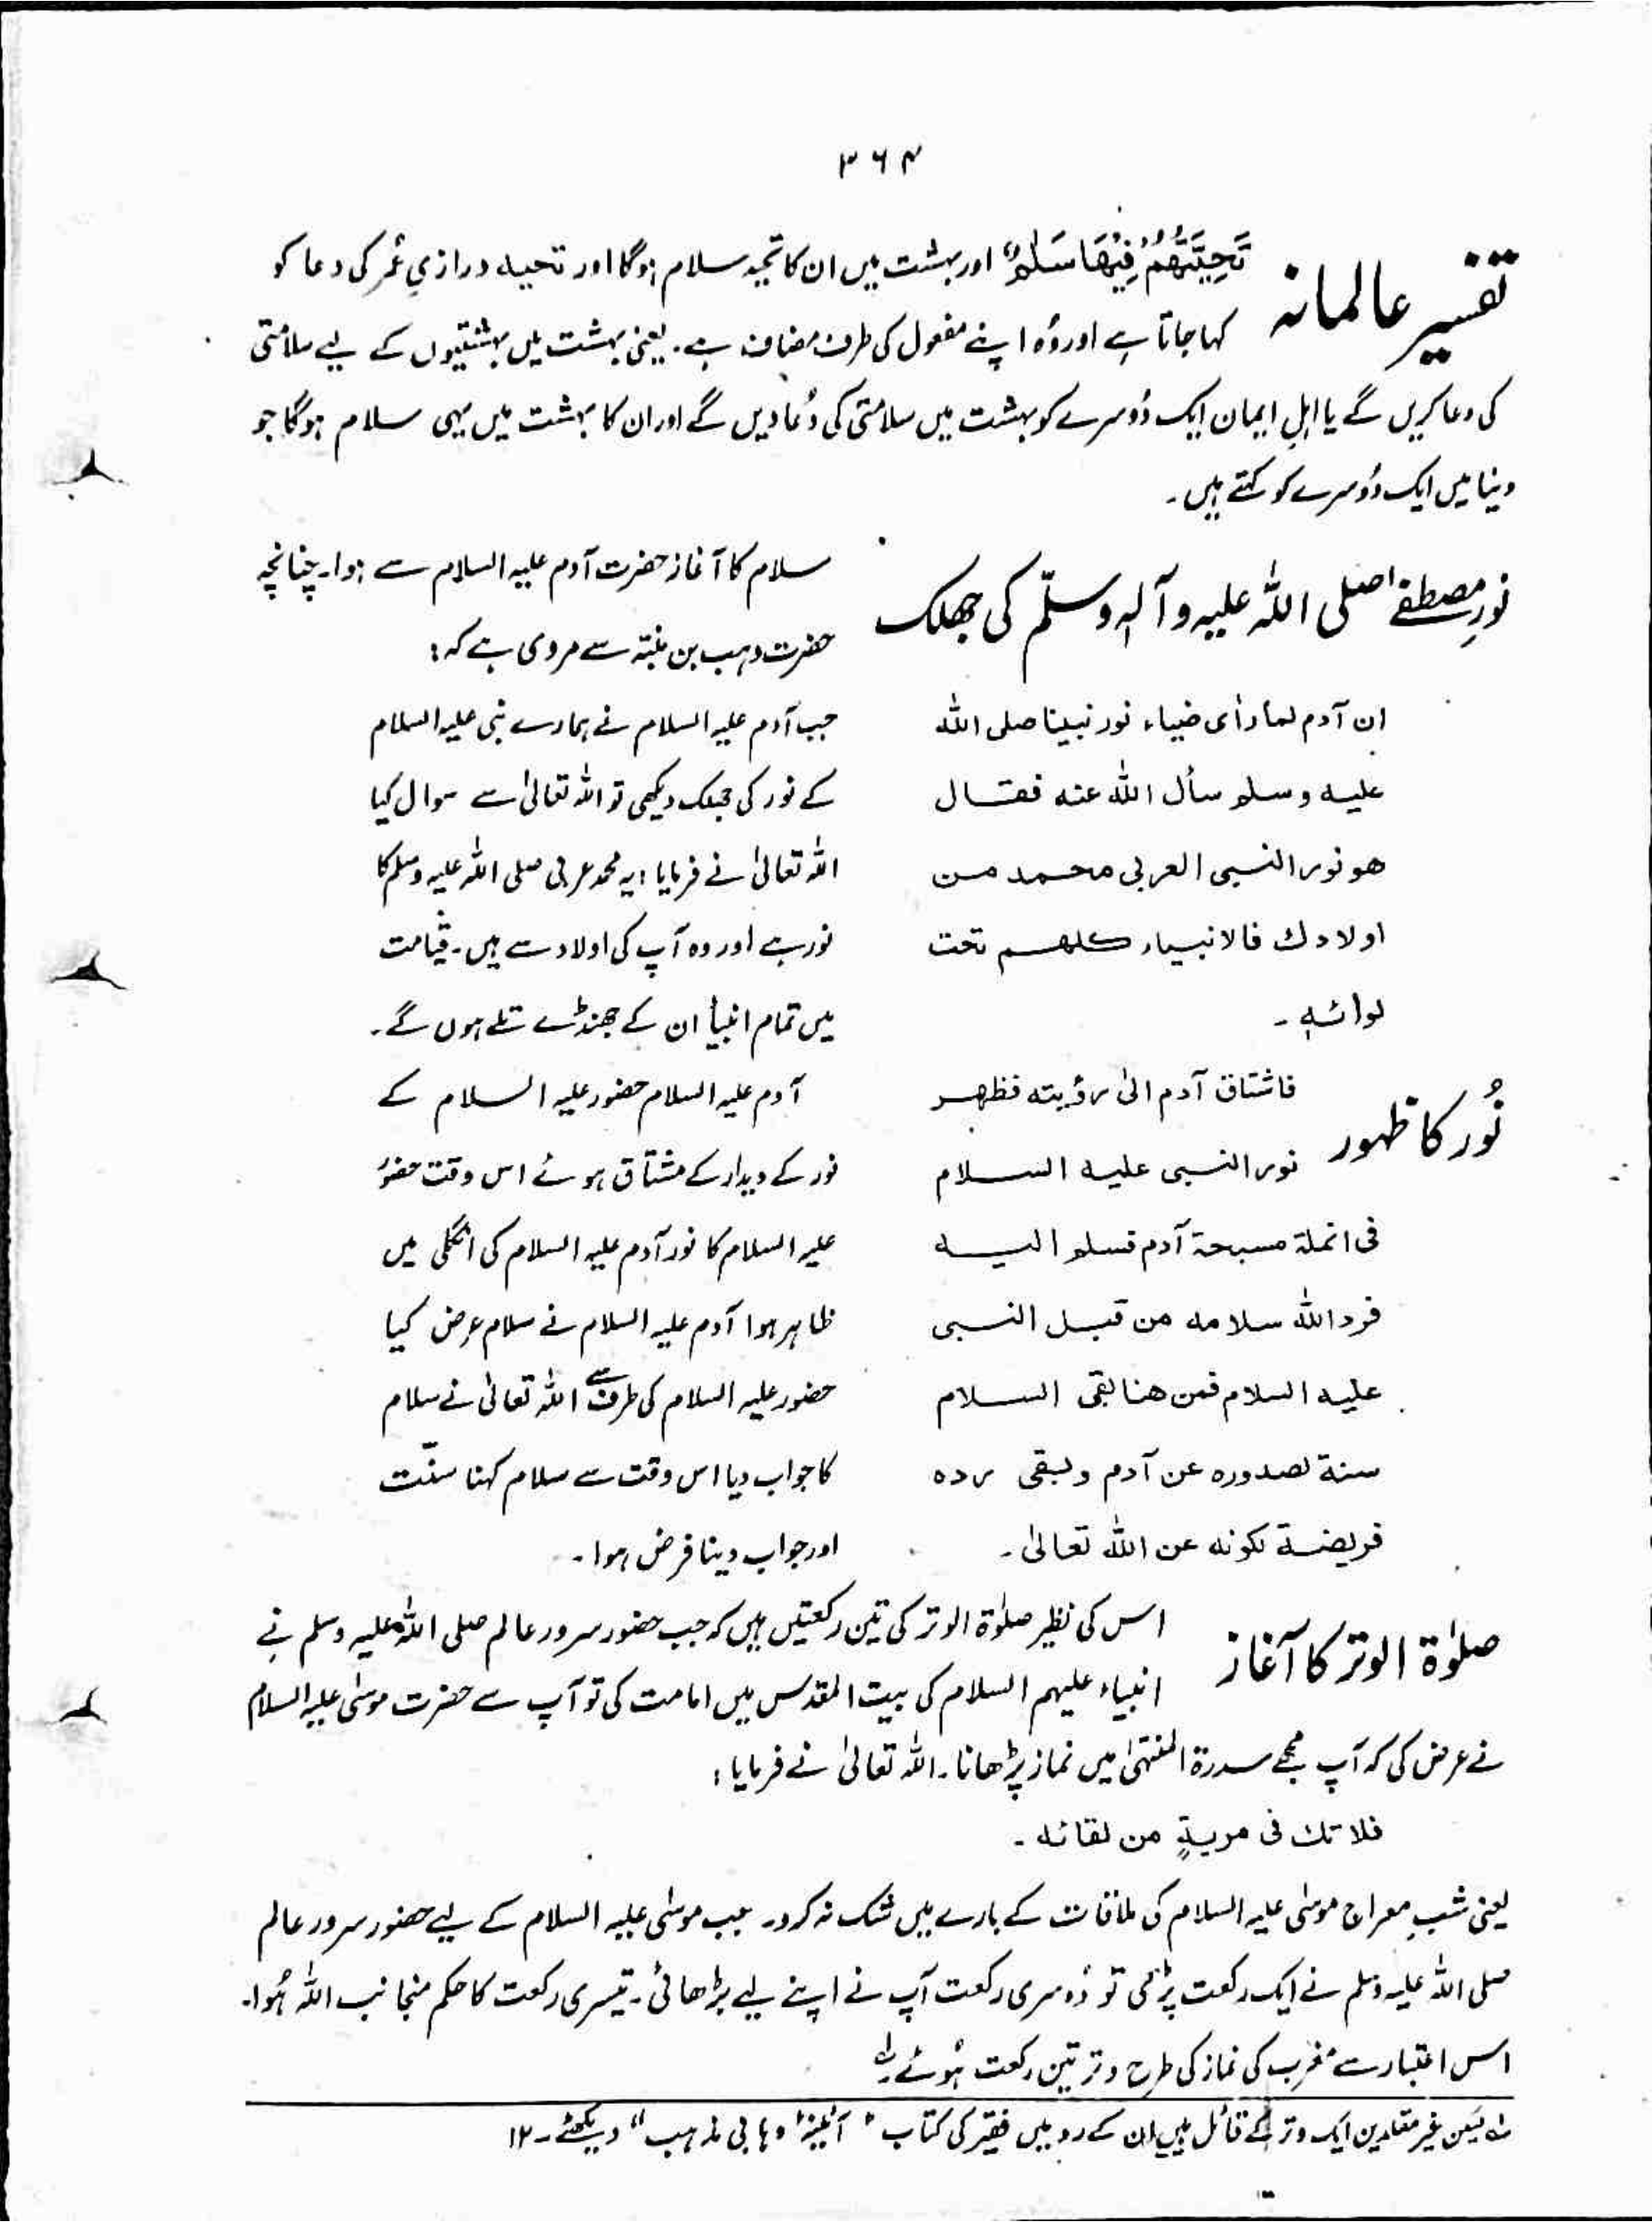 ۳۶۴
تفسیر عالمانہ
تَحِيَّتُهُمْ فِيْهَا سَلٰمٌ اور بہشت میں ان کا تحیہ سلام ہوگا اور تحیہ درازیِ عمر کی دعا کو
کہا جاتا ہے اور وُہ اپنے مفعول کی طرف مضاف ہے۔ یعنی بہشت میں بہشتیوں کے لیے سلامتی
کی دعا کریں گے یا اہلِ ایمان ایک دُوسرے کو بہشت میں سلامتی کی دُعا دیں گے اور ان کا بہشت میں یہی سلام ہوگا جو
دنیا میں ایک دُوسرے کو کہتے ہیں۔
نورِ مصطفےٰ صلی اللہ علیہ وآلہٖ وسلّم کی جھلک
سلام کا آغاز حضرت آدم علیہ السلام سے ہوا۔ چنانچہ
حضرت وہب بن منبّہ سے مروی ہے کہ:
ان آدم لما رأى ضياء نور نبينا صلى الله
عليه وسلم سأل الله عنه فقال
هو نور النبى العربى محمد من
اولادك فالانبياء كلهم تحت
لوائه۔
جب آدم علیہ السلام نے ہمارے نبی علیہ السلام
کے نور کی جھلک دیکھی تو اللہ تعالیٰ سے سوال کیا
اللہ تعالیٰ نے فرمایا: یہ محمد عربی صلی اللہ علیہ وسلم کا
نور ہے اور وہ آپ کی اولاد سے ہیں۔ قیامت
میں تمام انبیأ ان کے جھنڈے تلے ہوں گے۔
نُور کا ظہور
فاشتاق آدم الىٰ رؤيته فظهر
نور النبى عليه السلام
فى انملة مسبحة آدم فسلم اليه
فرد الله سلامه من قبل النبى
عليه السلام فمن هنا لقى السلام
سنة لصدوره عن آدم وبقى رده
فريضة لكونه عن الله تعالىٰ۔
آدم علیہ السلام حضور علیہ السلام کے
نور کے دیدار کے مشتاق ہوئے اس وقت حضور
علیہ السلام کا نور آدم علیہ السلام کی انگلی میں
ظاہر ہوا آدم علیہ السلام نے سلام عرض کیا
حضور علیہ السلام کی طرف سے اللہ تعالیٰ نے سلام
کا جواب دیا اس وقت سے سلام کہنا سنّت
اور جواب دینا فرض ہوا۔
صلوٰۃ الوتر کا آغاز
اس کی نظیر صلوٰۃ الوتر کی تین رکعتیں ہیں کہ جب حضور سرور عالم صلی اللہ علیہ وسلم نے
انبیاء علیہم السلام کی بیت المقدس میں امامت کی تو آپ سے حضرت موسٰی علیہ السلام
نے عرض کی کہ آپ مجھے سدرۃ المنتہیٰ میں نماز پڑھانا۔ اللہ تعالیٰ نے فرمایا:
فلا تك فى مريةٍ من لقائه۔
یعنی شبِ معراج موسٰی علیہ السلام کی ملاقات کے بارے میں شک نہ کرو۔ جب موسٰی علیہ السلام کے لیے حضور سرور عالم
صلی اللہ علیہ وسلم نے ایک رکعت پڑھی تو دُوسری رکعت آپ نے اپنے لیے بڑھائی۔ تیسری رکعت کا حکم منجانب اللہ ہُوا۔
اس اعتبار سے مغرب کی نماز کی طرح وتر تین رکعت ہُوئے۔
غیر مقلدین ایک وتر کے قائل ہیں ان کے رد میں فقیر کی کتاب "آئینۂ وہابی مذہب" دیکھئے۔ ۱۲